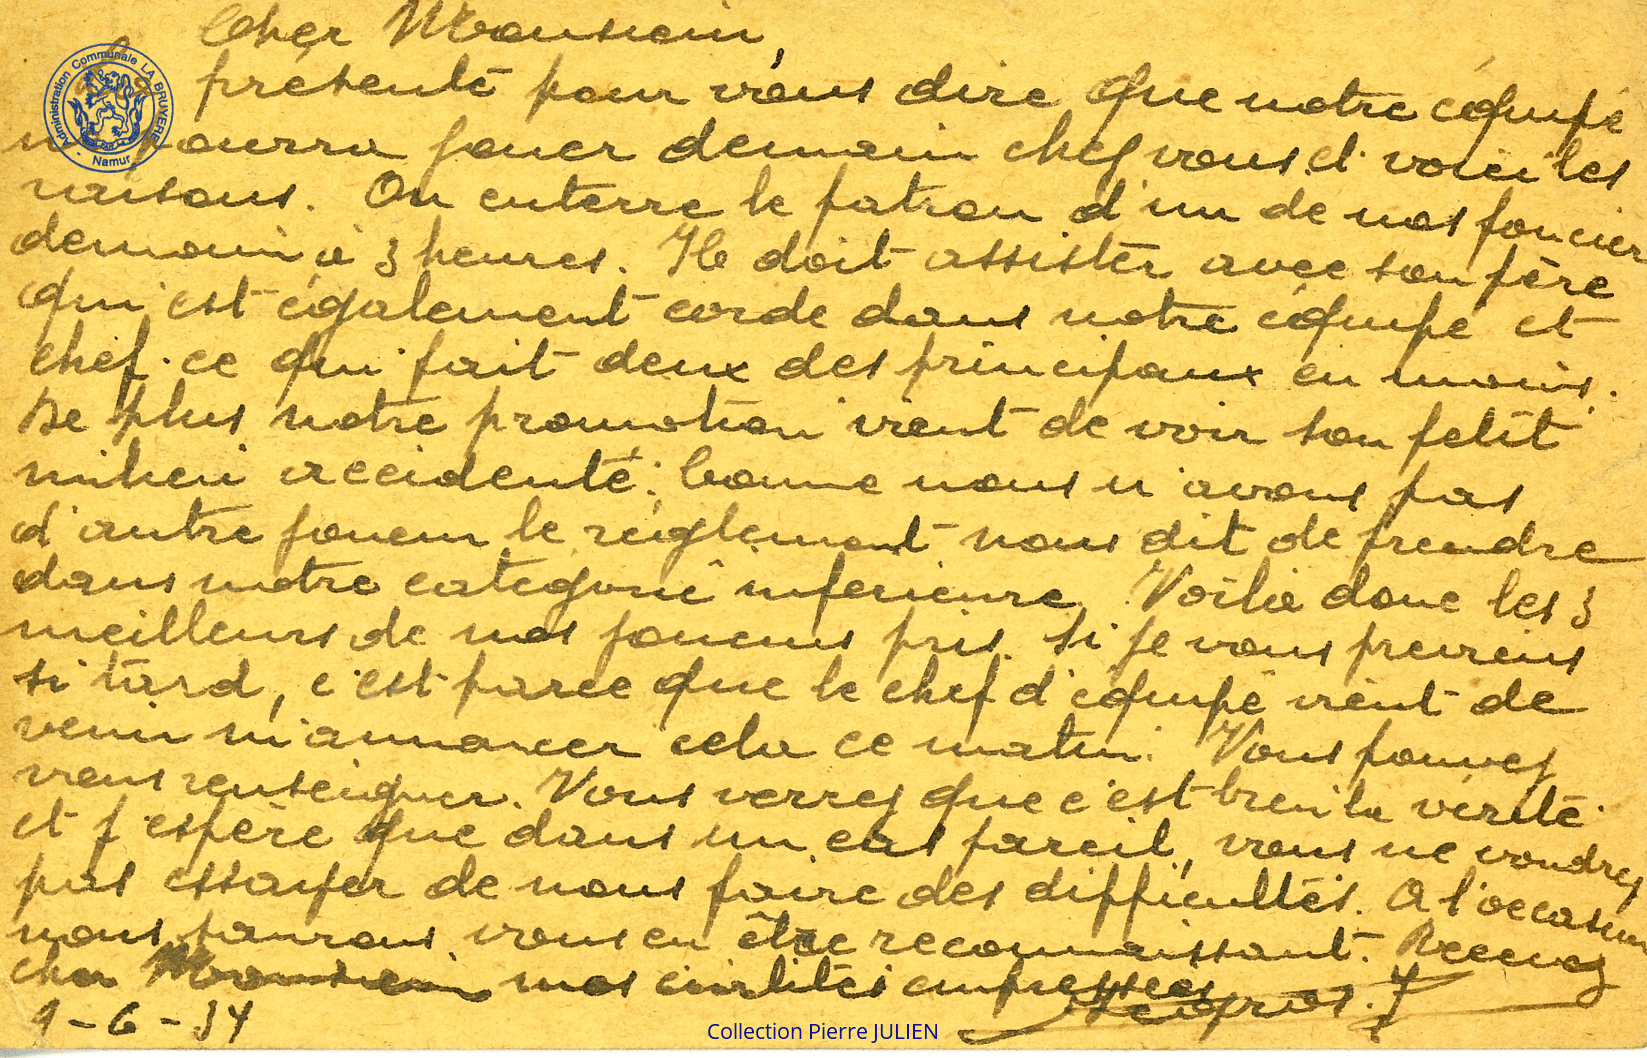 Cher Monsieur,
présente pour vous dire que notre équipe
pourra jouer demain chez vous et voici les
raisons. On enterre le patron d'un de nos foncier
demain à 3 heures. Il doit assister avec son père
qui est également corde dans notre équipe et
chef. ce qui fait deux des principaux en moins.
De plus notre promotion vient de voir son petit
milieu accidenté; comme nous n'avons pas
d'autre joueur le réglement nous dit de prendre
dans notre categorie inferieure. Voilà donc les 3
meilleurs de nos joueurs pris. Si je vous previens
si tard, c'est parce que le chef d'équipe vient de
venir m'annoncer cela ce matin. Vous pouvez
vous renseigner. Vous verrez que c'est bien la vérité
et j'espère que dans un cas pareil, vous ne voudrez
pas essayer de nous faire des difficultés. A l'occasion
nous saurons vous en être reconnaissant. Recevez
cher Monsieur mos civilités empressées
9-6-34
Administration Communale LA BRUYERE - Namur -
Collection Pierre JULIEN